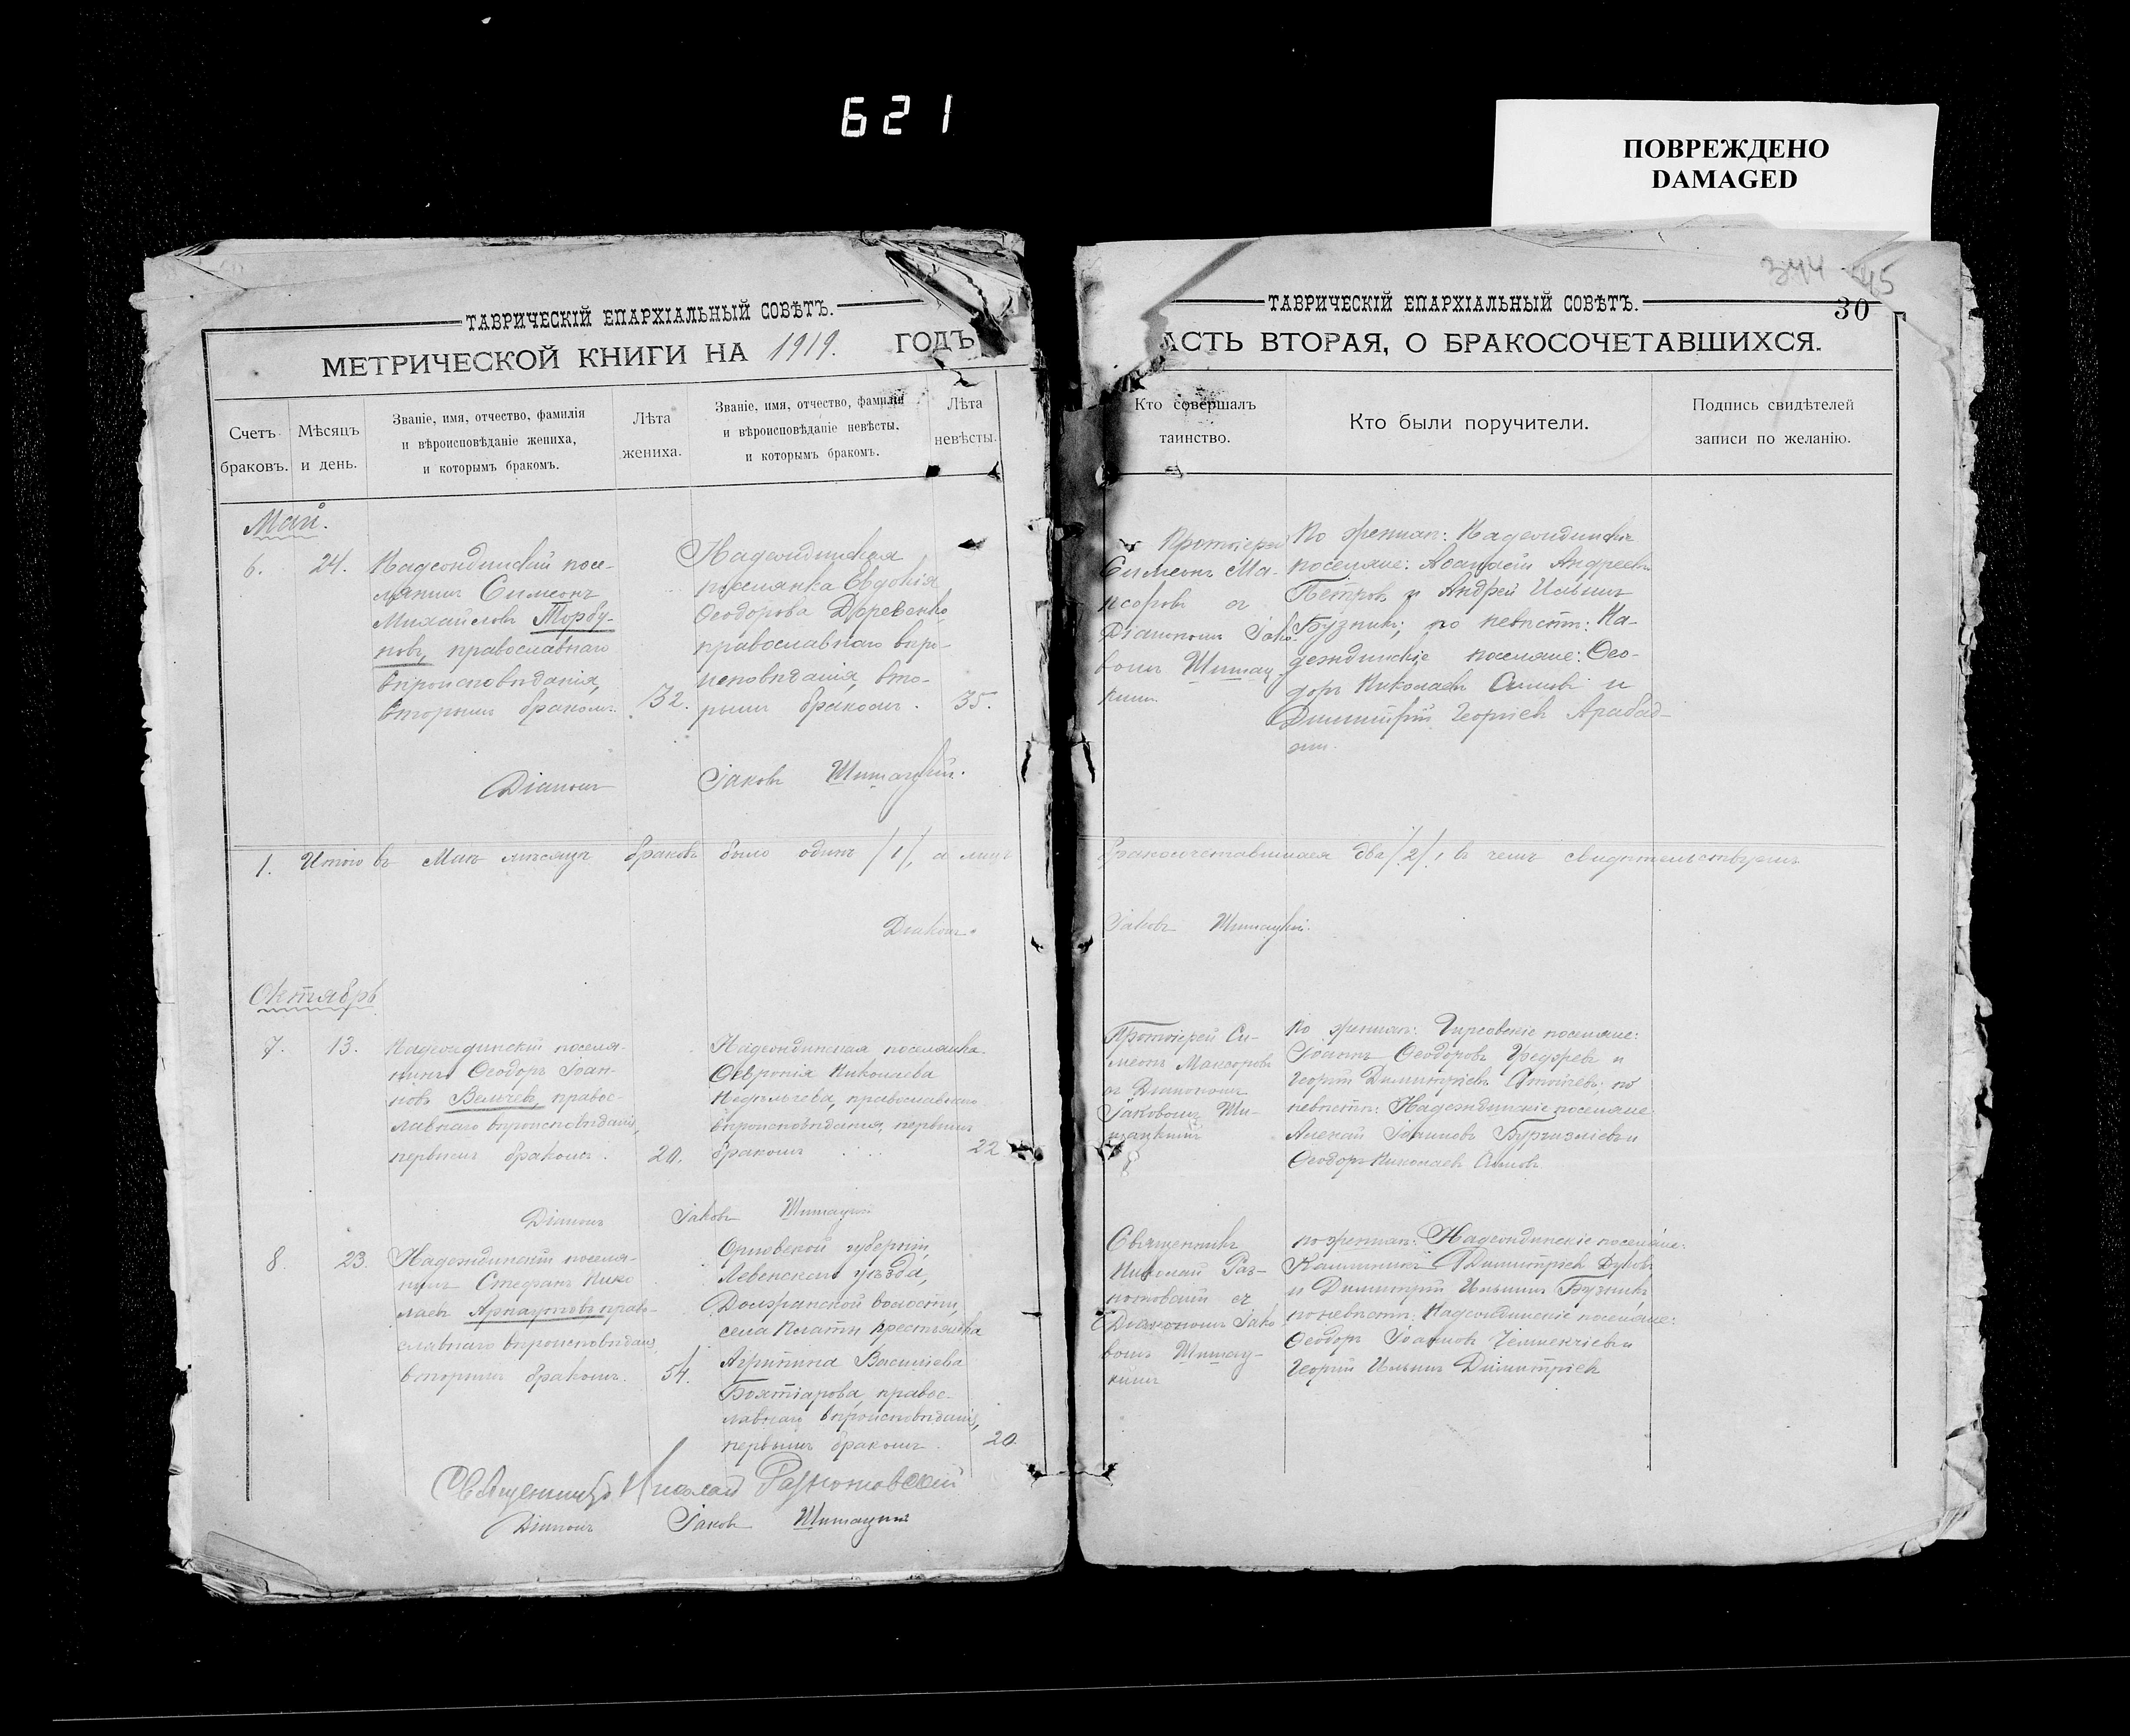 621
ПОВРЕЖДЕНО
DAMAGED
ТАВРИЧЕСКІЙ ЕПАРХІАЛЬНЫЙ СОВѢТЪ.
МЕТРИЧЕСКОЙ КНИГИ НА 1919. ГОДЪ
Счетъ браковъ.
Мѣсяцъ и день.
Званіе, имя, отчество, фамилія
и вѣроисповѣданіе жениха,
и которымъ бракомъ.
Лѣта
жениха.
Званіе, имя, отчество, фамилія
и вѣроисповѣданіе невѣсты,
и которымъ бракомъ.
Лѣта
невѣсты.
Май.
6.
24.
Надеждинскій посе-
лянинъ Симеонъ
Михайловъ Торбу-
новъ, православнаго
вѣроисповѣданія,
вторымъ бракомъ.
32.
Надеждинская
поселянка Евдокія
Ѳеодорова
православнаго вѣро-
исповѣданія, вто-
рымъ бракомъ.
35.
Діаконъ Іаковъ Шишацкій.
1. Итого въ Маѣ мѣсяцѣ браковъ было одинъ /1/, а лицъ
Діаконъ
Октябрь
7.
13.
Надеждинскій поселя-
нинъ Ѳеодоръ Іоан-
новъ Велчевъ, правос-
лавнаго вѣроисповѣданія,
первымъ бракомъ.
20.
Надеждинская поселянка
Ѳевронія Николаева
Недѣльчева, православнаго
вѣроисповѣданія, первымъ
бракомъ
22
Діаконъ Іаковъ Шишацкій
8.
23.
Надеждинскій поселя-
нинъ Стефанъ Нико
лаевъ Арнаутовъ право-
славнаго вѣроисповѣданія,
вторымъ бракомъ.
54.
Орловской губерніи,
Ливенскаго уѣзда,
волости,
села крестьянка
Агрипина Василіева
Бохтіарова, правос-
лавнаго вѣроисповѣданія,
первымъ бракомъ.
20.
Священникъ Николай Разнотовскій
Діаконъ Іаковъ Шишацкій
344 45
ТАВРИЧЕСКІЙ ЕПАРХІАЛЬНЫЙ СОВѢТЪ.
30
АСТЬ ВТОРАЯ, О БРАКОСОЧЕТАВШИХСЯ.
Кто совершалъ
таинство.
Кто были поручители.
Подпись свидѣтелей
записи по желанію.
Протоіерей
Симеонъ Ма-
ксоровъ съ
Діакономъ Іако-
вомъ Шишац-
кимъ.
По женихѣ: Надеждинскіе
поселяне: Андреевъ
Петровъ и Андрей Ильинъ
Бузникъ; по невѣстѣ: На-
деждинскіе поселяне: Ѳео-
доръ Николаевъ Симовъ и
Димитрій Георгіевъ Арабад-
жи.
бракосочетавшихся два /2/, въ чемъ свидѣтельствуемъ
Іаковъ Шишацкій.
Протоіерей Си-
меонъ Максоровъ
съ Діакономъ
Іаковомъ Ши-
шацкимъ
По женихѣ: поселяне:
Іоаннъ Ѳеодоровъ и
Георгій Димитріевъ Стойчевъ; по
невѣстѣ: Надеждинскіе поселяне:
Алексѣй Іоанновъ и
Ѳеодоръ Николаевъ Симовъ
Священникъ
Николай Раз-
нотовскій съ
Діакономъ Іако
вомъ Шишац-
кимъ
по женихѣ: Надеждинскіе поселяне:
Димитріевъ Дуковъ
и Димитрій Ильинъ Бузникъ
по невѣстѣ: Надеждинскіе поселяне:
Ѳеодоръ Іоанновъ и
Георгій Ильинъ Димитріевъ